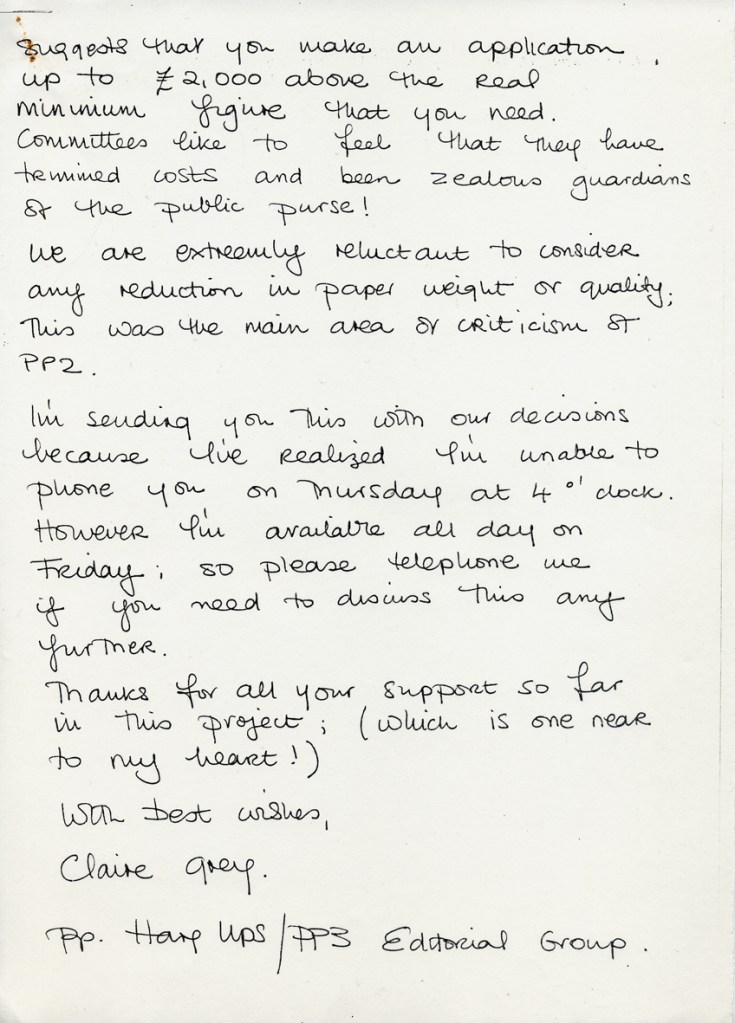 suggests that you make an application
up to £2,000 above the real
minimium figure that you need.
Committees like to feel that they have
trimmed costs and been zealous guardians
of the public purse!
We are extremly reluctant to consider
any reduction in paper weight or quality;
This was the main area of criticism of
PP2.
I'm sending you this with our decisions
because I've realized I'm unable to
phone you on Thursday at 4 o'clock.
However I'm available all day on
Friday; so please telephone me
if you need to discuss this any
further.
Thanks for all your support so far
in this project; (which is one near
to my heart!)
With best wishes,
Claire Grey.
pp. Hang Ups/PP3 Editorial Group.